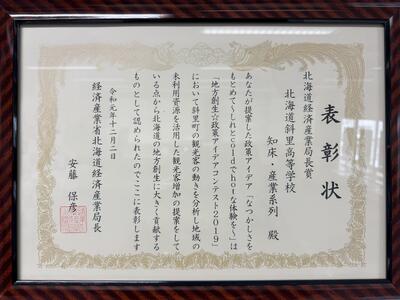 表彰状
北海道経済産業局長賞
北海道斜里高等学校
知床・産業系列 殿
あなたが提案した政策アイデア「なつかしさを
もとめて～しれとcoldでhotな体験を～」は
「地方創生☆政策アイデアコンテスト2019」
において斜里町の観光客の動きを分析し地域の
未利用資源を活用した観光客増加の提案をして
いる点から北海道の地方創生に大きく貢献する
ものとして認められたのでここに表彰します
令和元年十二月二日
経済産業省北海道経済産業局長
安藤 保彦